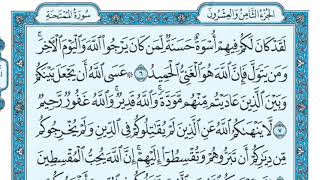 الجزء الثامن والعشرون
سورة الممتحنة
لَقَدْ كَانَ لَكُمْ فِيهِمْ أُسْوَةٌ حَسَنَةٌ لِّمَن كَانَ يَرْجُوا۟ ٱللَّهَ وَٱلْيَوْمَ ٱلْءَاخِرَ ۚ
وَمَن يَتَوَلَّ فَإِنَّ ٱللَّهَ هُوَ ٱلْغَنِىُّ ٱلْحَمِيدُ ۝٦ ۞ عَسَى ٱللَّهُ أَن يَجْعَلَ بَيْنَكُمْ
وَبَيْنَ ٱلَّذِينَ عَادَيْتُم مِّنْهُم مَّوَدَّةً ۚ وَٱللَّهُ قَدِيرٌ ۚ وَٱللَّهُ غَفُورٌ رَّحِيمٌ
۝٧ لَّا يَنْهَىٰكُمُ ٱللَّهُ عَنِ ٱلَّذِينَ لَمْ يُقَٰتِلُوكُمْ فِى ٱلدِّينِ وَلَمْ يُخْرِجُوكُم
مِّن دِيَٰرِكُمْ أَن تَبَرُّوهُمْ وَتُقْسِطُوٓا۟ إِلَيْهِمْ ۚ إِنَّ ٱللَّهَ يُحِبُّ ٱلْمُقْسِطِينَ